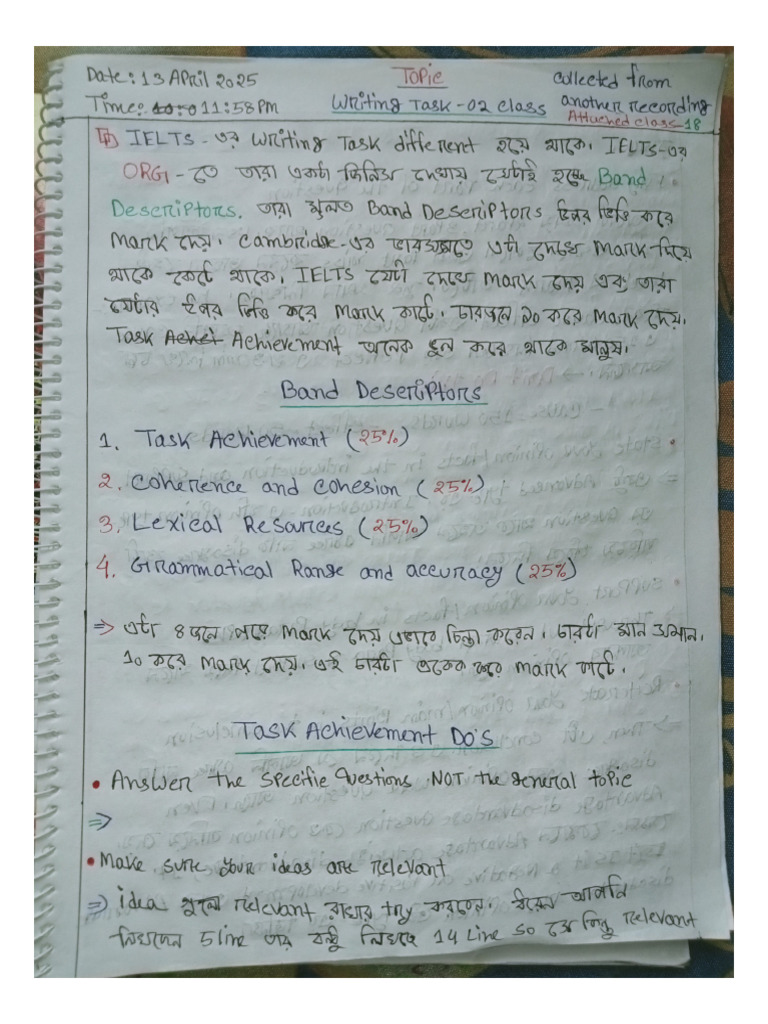 Date: 13 April 2025
Topic
collected from
Time: 10:0 11:58 PM
Writing Task-02 class
another recording
Attached class-18
IELTS-এর Writing Task different হয়ে থাকে। IELTS-এর
ORG-তে তারা একটা জিনিস দেখায় যেটাই হচ্ছে Band
Descriptors. তারা মূলত Band Descriptors উপর ভিত্তি করে
Mark দেয়। Cambridge-এর ভাষ্যমতে এটা দেখে Mark দিয়ে
থাকে কেটে থাকে। IELTS যেটা দেখে Mark দেয় এবং তারা
যেটার উপর ভিত্তি করে Mark কাটে। চারজনে ১০ করে Mark দেয়।
Task Achei Achievement অনেক ভুল করে থাকে মানুষ।
Band Descriptors
1. Task Achievement (25%)
2. Coherence and Cohesion (25%)
3. Lexical Resources (25%)
4. Grammatical Range and accuracy (25%)
⇒ এটা ৪ জনে Mark দেয় এভাবে চিন্তা করেন। চারটা মান সমান।
10 করে Mark দেয়। এই চারটা একেক করে Mark
Task Achievement Do's
• Answer the specific Questions NOT the general topic
⇒
• Make sure your ideas are relevant
⇒ idea গুলো relevant রাখার try করবেন। আপনি
লিখলেন 5 line তার বন্ধু লিখছে 14 Line so relevant